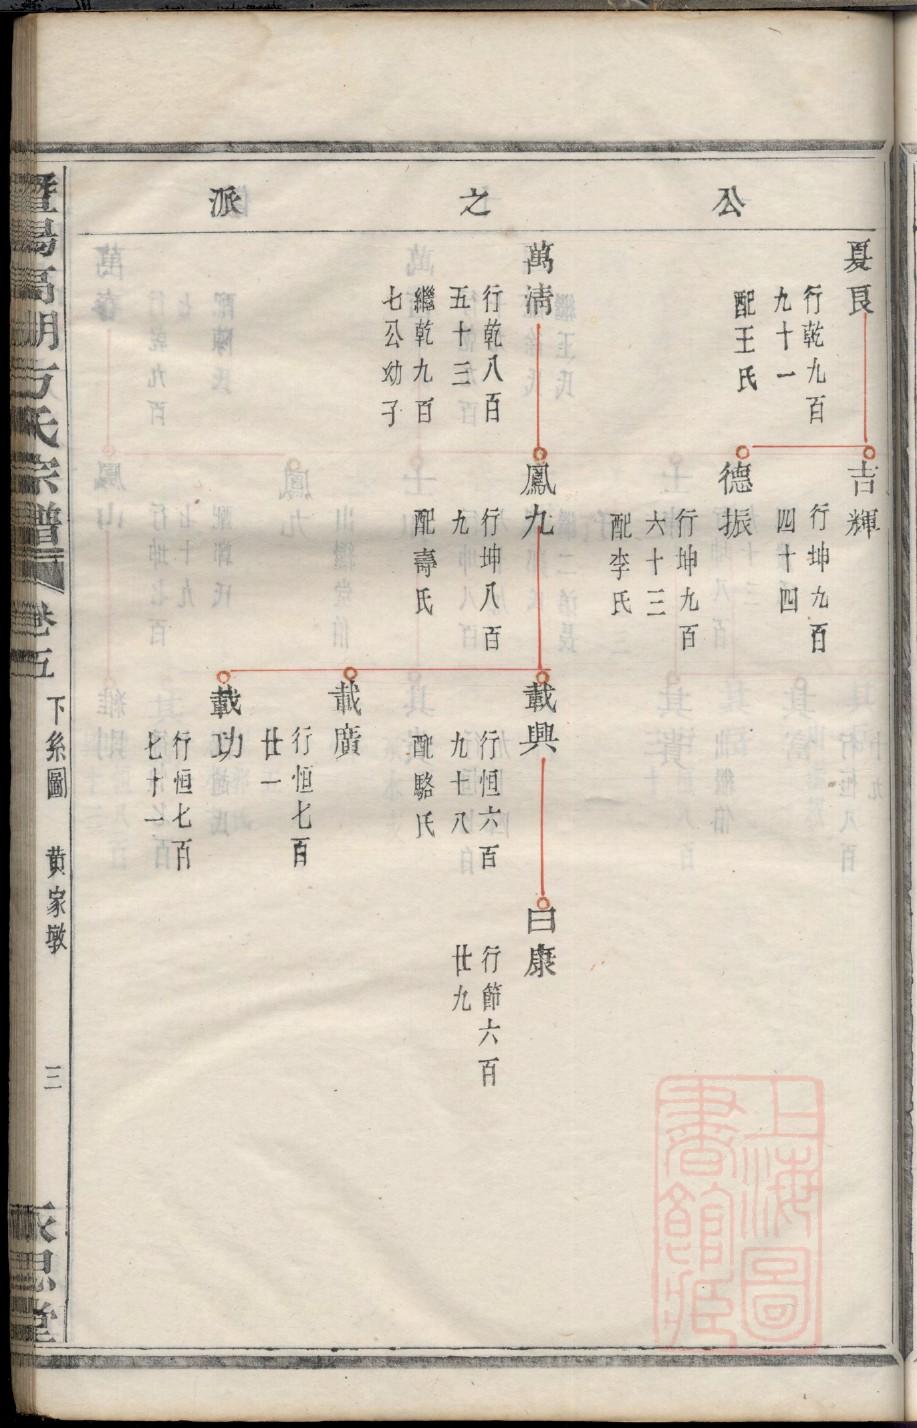 公之派
夏良
行乾九百
九十一
配王氏
吉輝
行坤九百
四十四
德振
行坤九百
六十三
配李氏
萬清
行乾八百
五十三
繼乾九百
七公幼子
鳳九
行坤八百
九
配壽氏
載興
行恒六百
九十八
配駱氏
載廣
行恒七百
廿一
載功
行恒七百
七十一
曰康
行節六百
廿九
暨陽高湖方氏宗譜
卷五
下系圖
黄家墩
三
永思堂
上海圖
書館藏